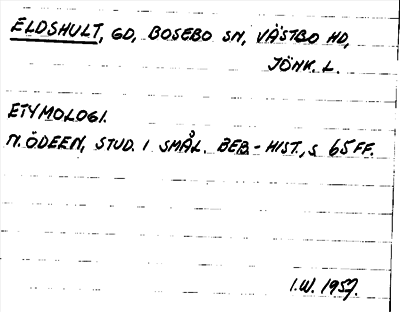 ELDSHULT, GD, BOSEBO SN, VÄSTBO HD,
JÖNK. L.
ETYMOLOGI.
N. ÖDEEN, STUD. I SMÅL. BEB.-HIST., S 65 FF.
I.W. 1957.